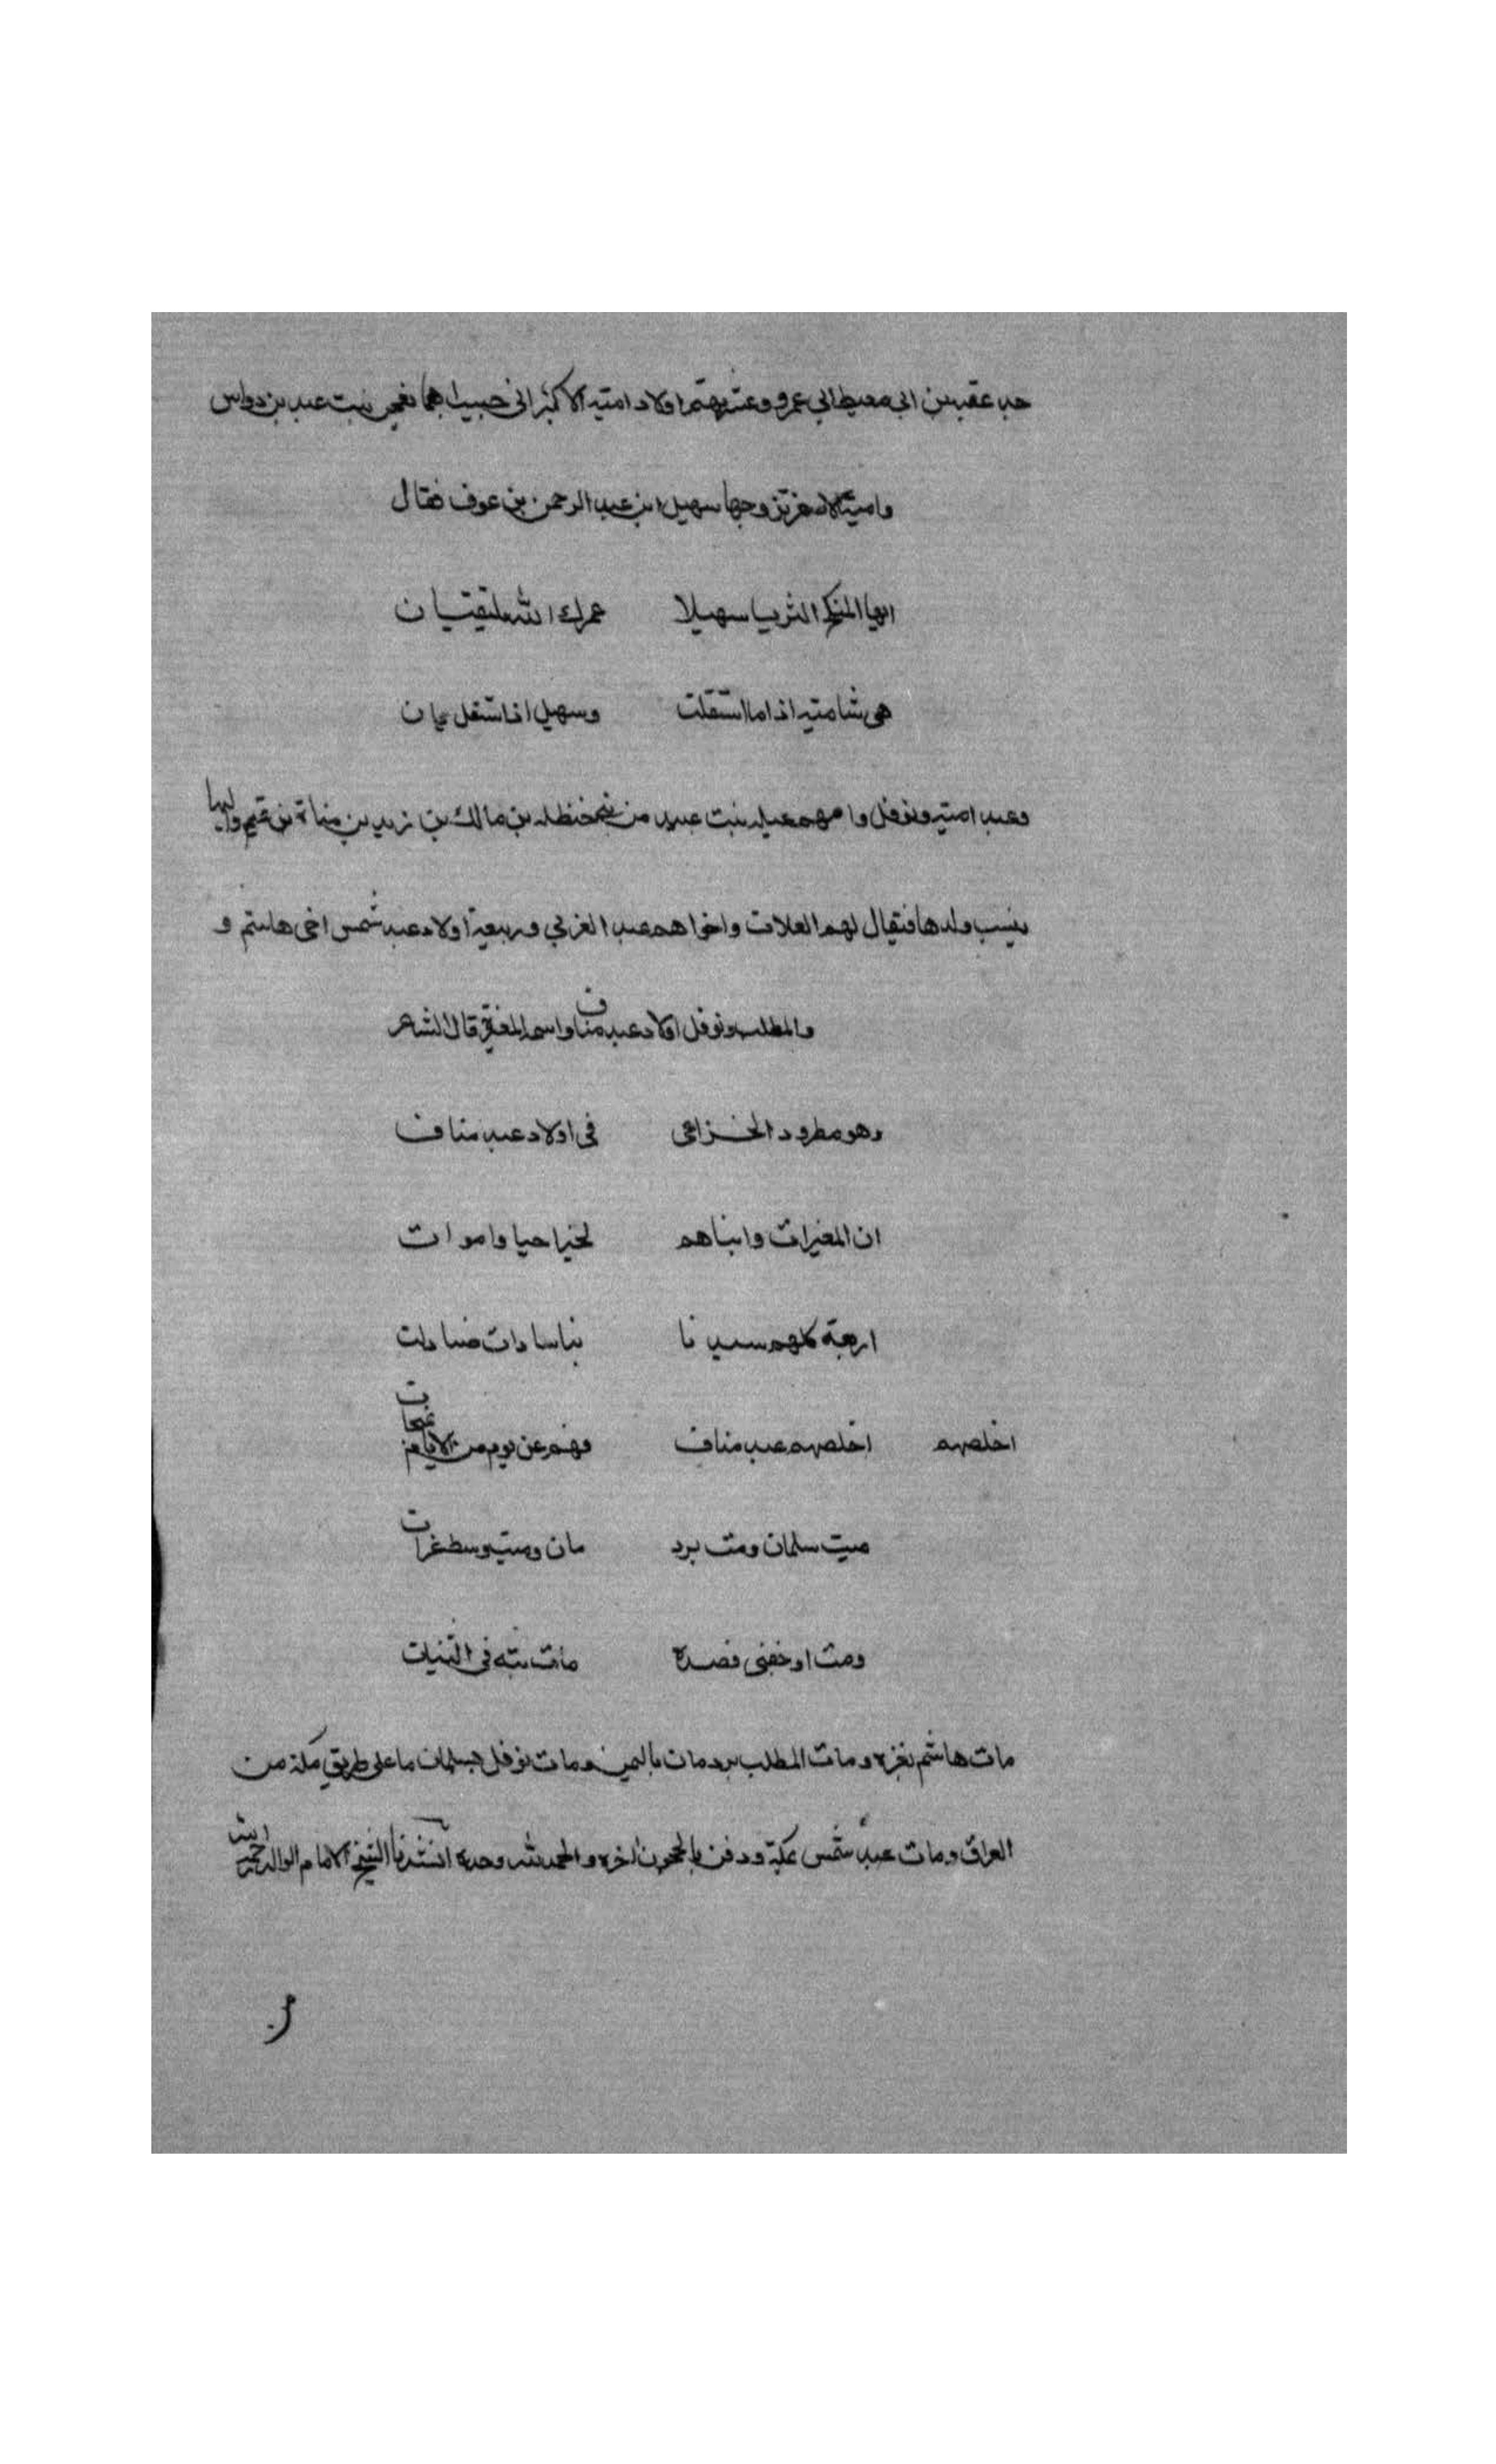 جد عقبه بن ابي معيط ابي عمرو وعتبهم اولاد امية الاكبر اني حبيبا بهما نعجن بنت عبد بن دواس
وامية الاصغر تزوجها سهيل ابن عبد الرحمن بن عوف فقال
ايها المنكح الثريا سهيلا عمرك الله يلتقيان
هي شاميه اذا ما استقلت وسهيل اذا استقل يمان
وعبد اميه ونوفل وامهم عبله بنت عبيد من بني حنظله بن مالك بن زيد بن مناة بن تميم واليها
ينسب ولدها فيقال لهم العبلات واخواهم عبد العزي وربيعة اولاد عبد شمس اخي هاشم و
والمطلب ونوفل اولاد عبد مناف واسمه المغيرة قال الشاعر
وهو مطرود الخزاعي في اولاد عبد مناف
ان المغيرات وابناهم لخير احيا واموات
اربعة كلهم سيد نا بنا سادات ضادات
اخلصهم اخلصهم عبد مناف فهم عن يوم من الايام
ميت سلمان ومت برد مان وميت وسط غزات
ومت او خفني فصده مات بته في الثنيات
مات هاشم بغزه ومات المطلب بردمان باليمن ومات نوفل بسلمان ما على طريق مكة من
العراق ومات عبد شمس بمكة ودفن بالحجون اخره والحمد لله وحده انشدنا الشيخ الامام الوالد رحمه